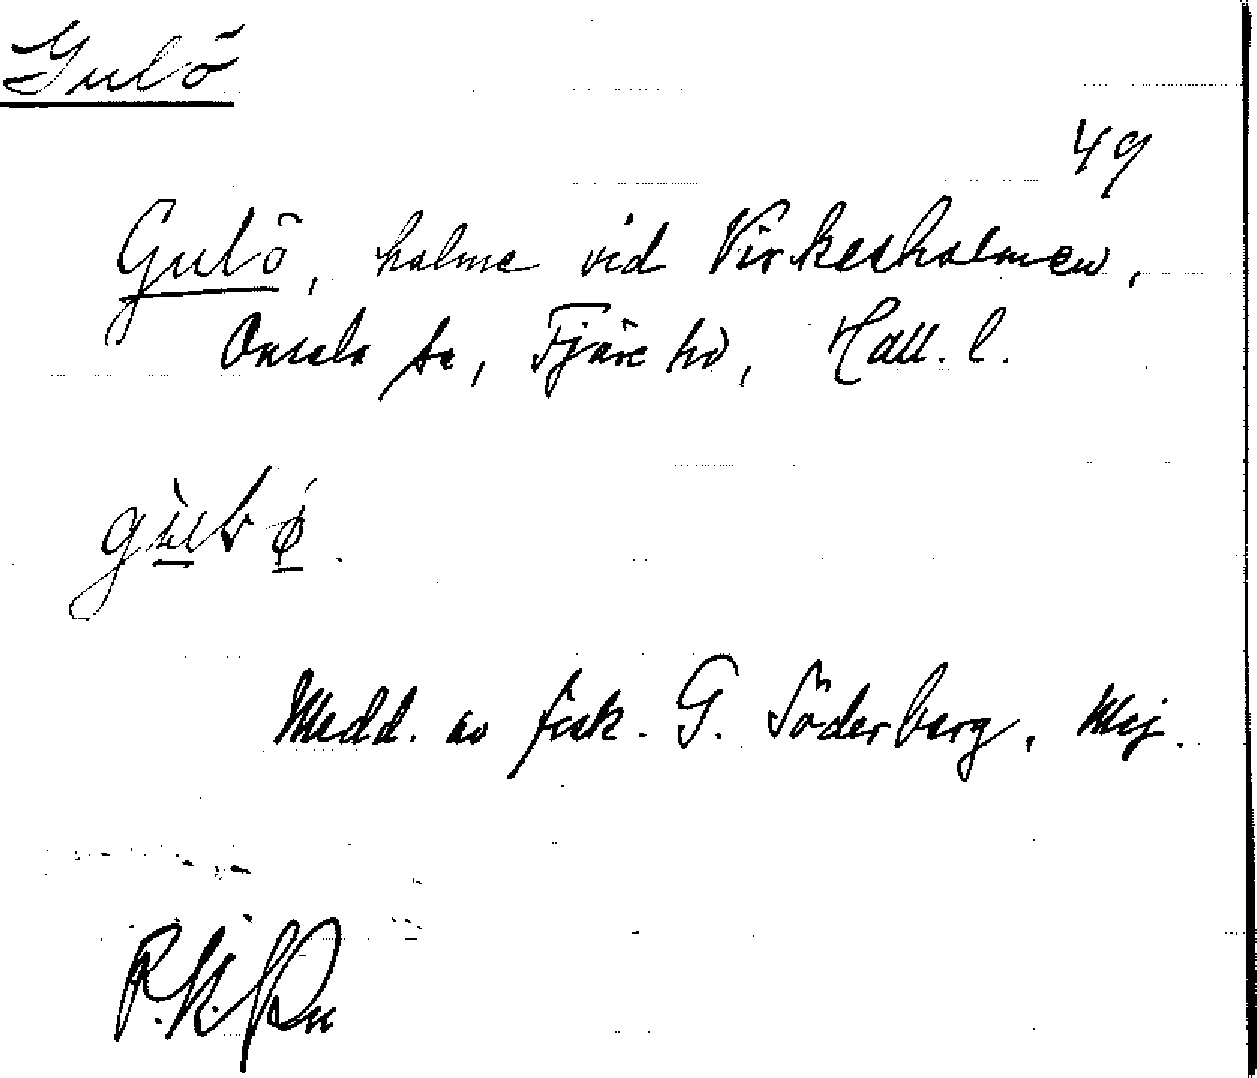 Gulö
49
Gulö, holme vid Virkesholmen,
Onsala sn, Fjäre hd, Hall. l.
Medd. av fisk. G. Söderberg, Mej.